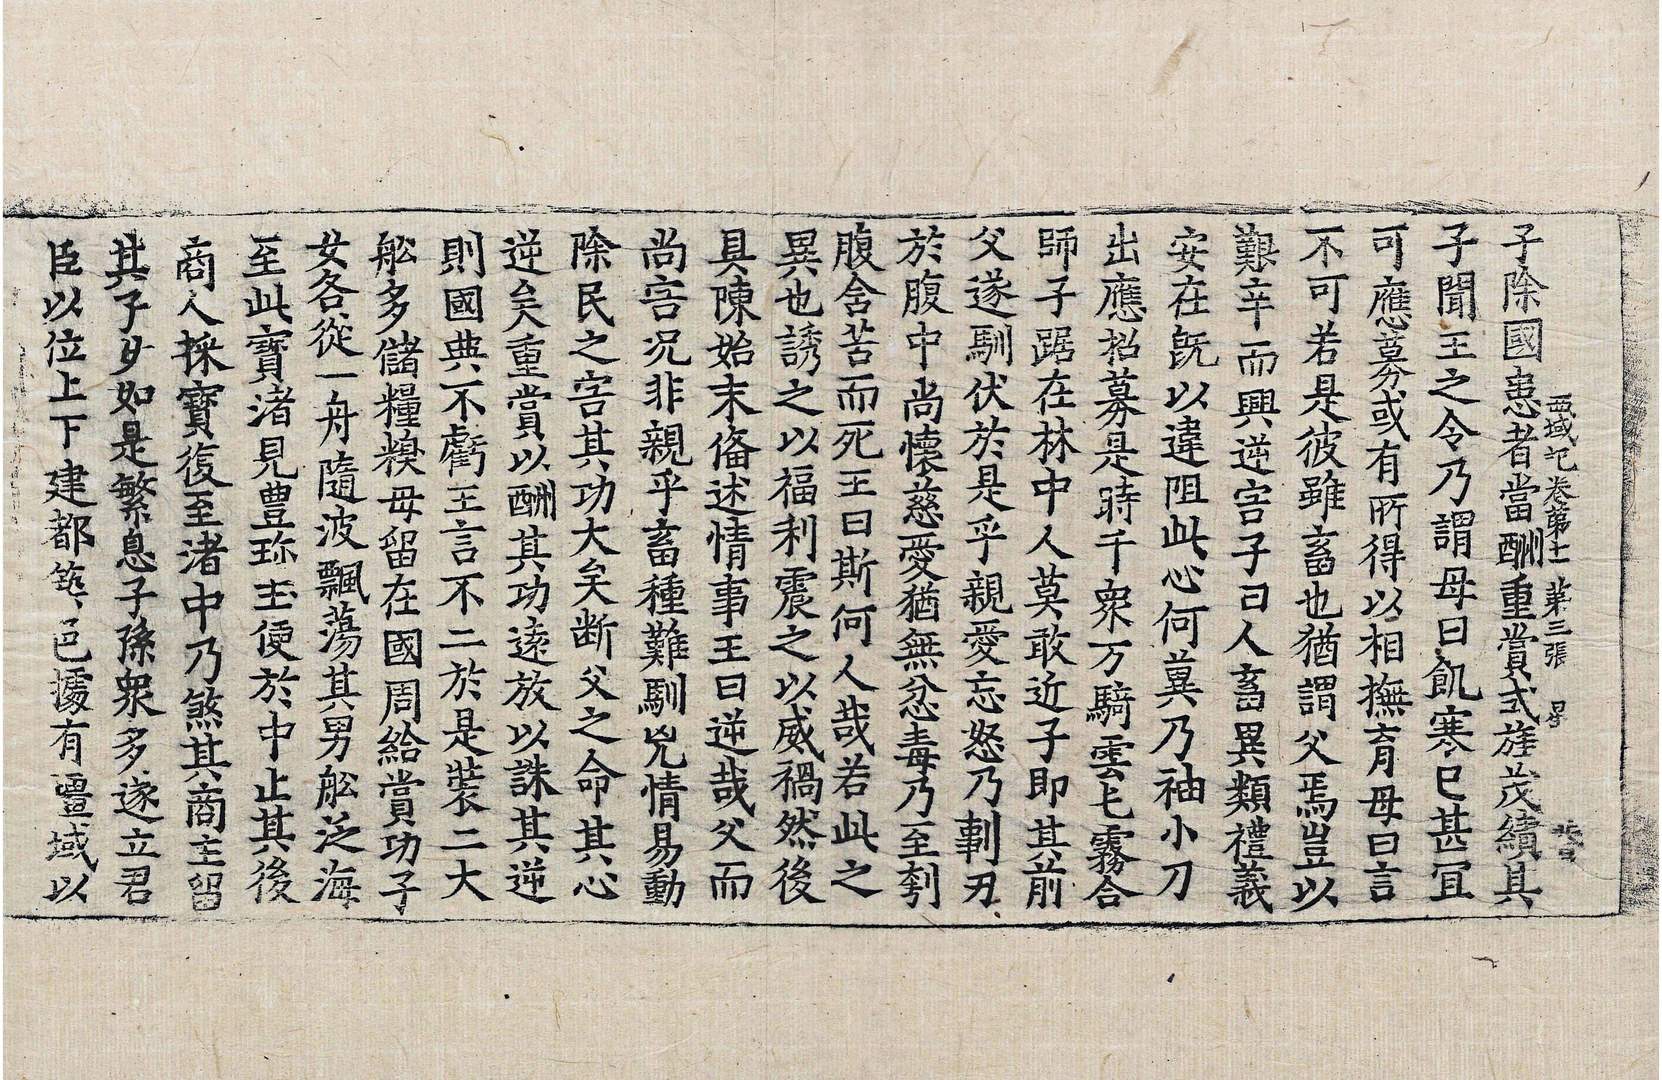 西域記卷第十一 第三張 星
子除國患者當酬重賞式旌茂績其
子聞王之令乃謂母曰飢寒已甚冝
可應募或有所得以相撫育母曰言
不可若是彼雖畜也猶謂父焉豈以
艱辛而興逆害子曰人畜異類禮義
安在旣以違阻此心何兾乃袖小刀
出應招募是時千衆万騎雲屯霧合
師子踞在林中人莫敢近子即其前
父遂馴伏於是乎親愛忘怒乃剚刃
於腹中尚懷慈愛猶無忿毒乃至刳
腹舍苦而死王曰斯何人哉若此之
異也誘之以福利震之以威禍然後
具陳始末俻述情事王曰逆哉父而
尚害况非親乎畜種難馴兇情易動
除民之害其功大矣断父之命其心
逆矣重賞以酬其功遠放以誅其逆
則國典不虧王言不二於是裝二大
舩多儲糧糗母留在國周給賞功子
女各從一舟隨波飄蕩其男舩泛海
至此寶渚見豊珎玉便於中止其後
商人採寶復至渚中乃煞其商主留
其子女如是繁息子孫衆多遂立君
臣以位上下建都築邑據有疆域以